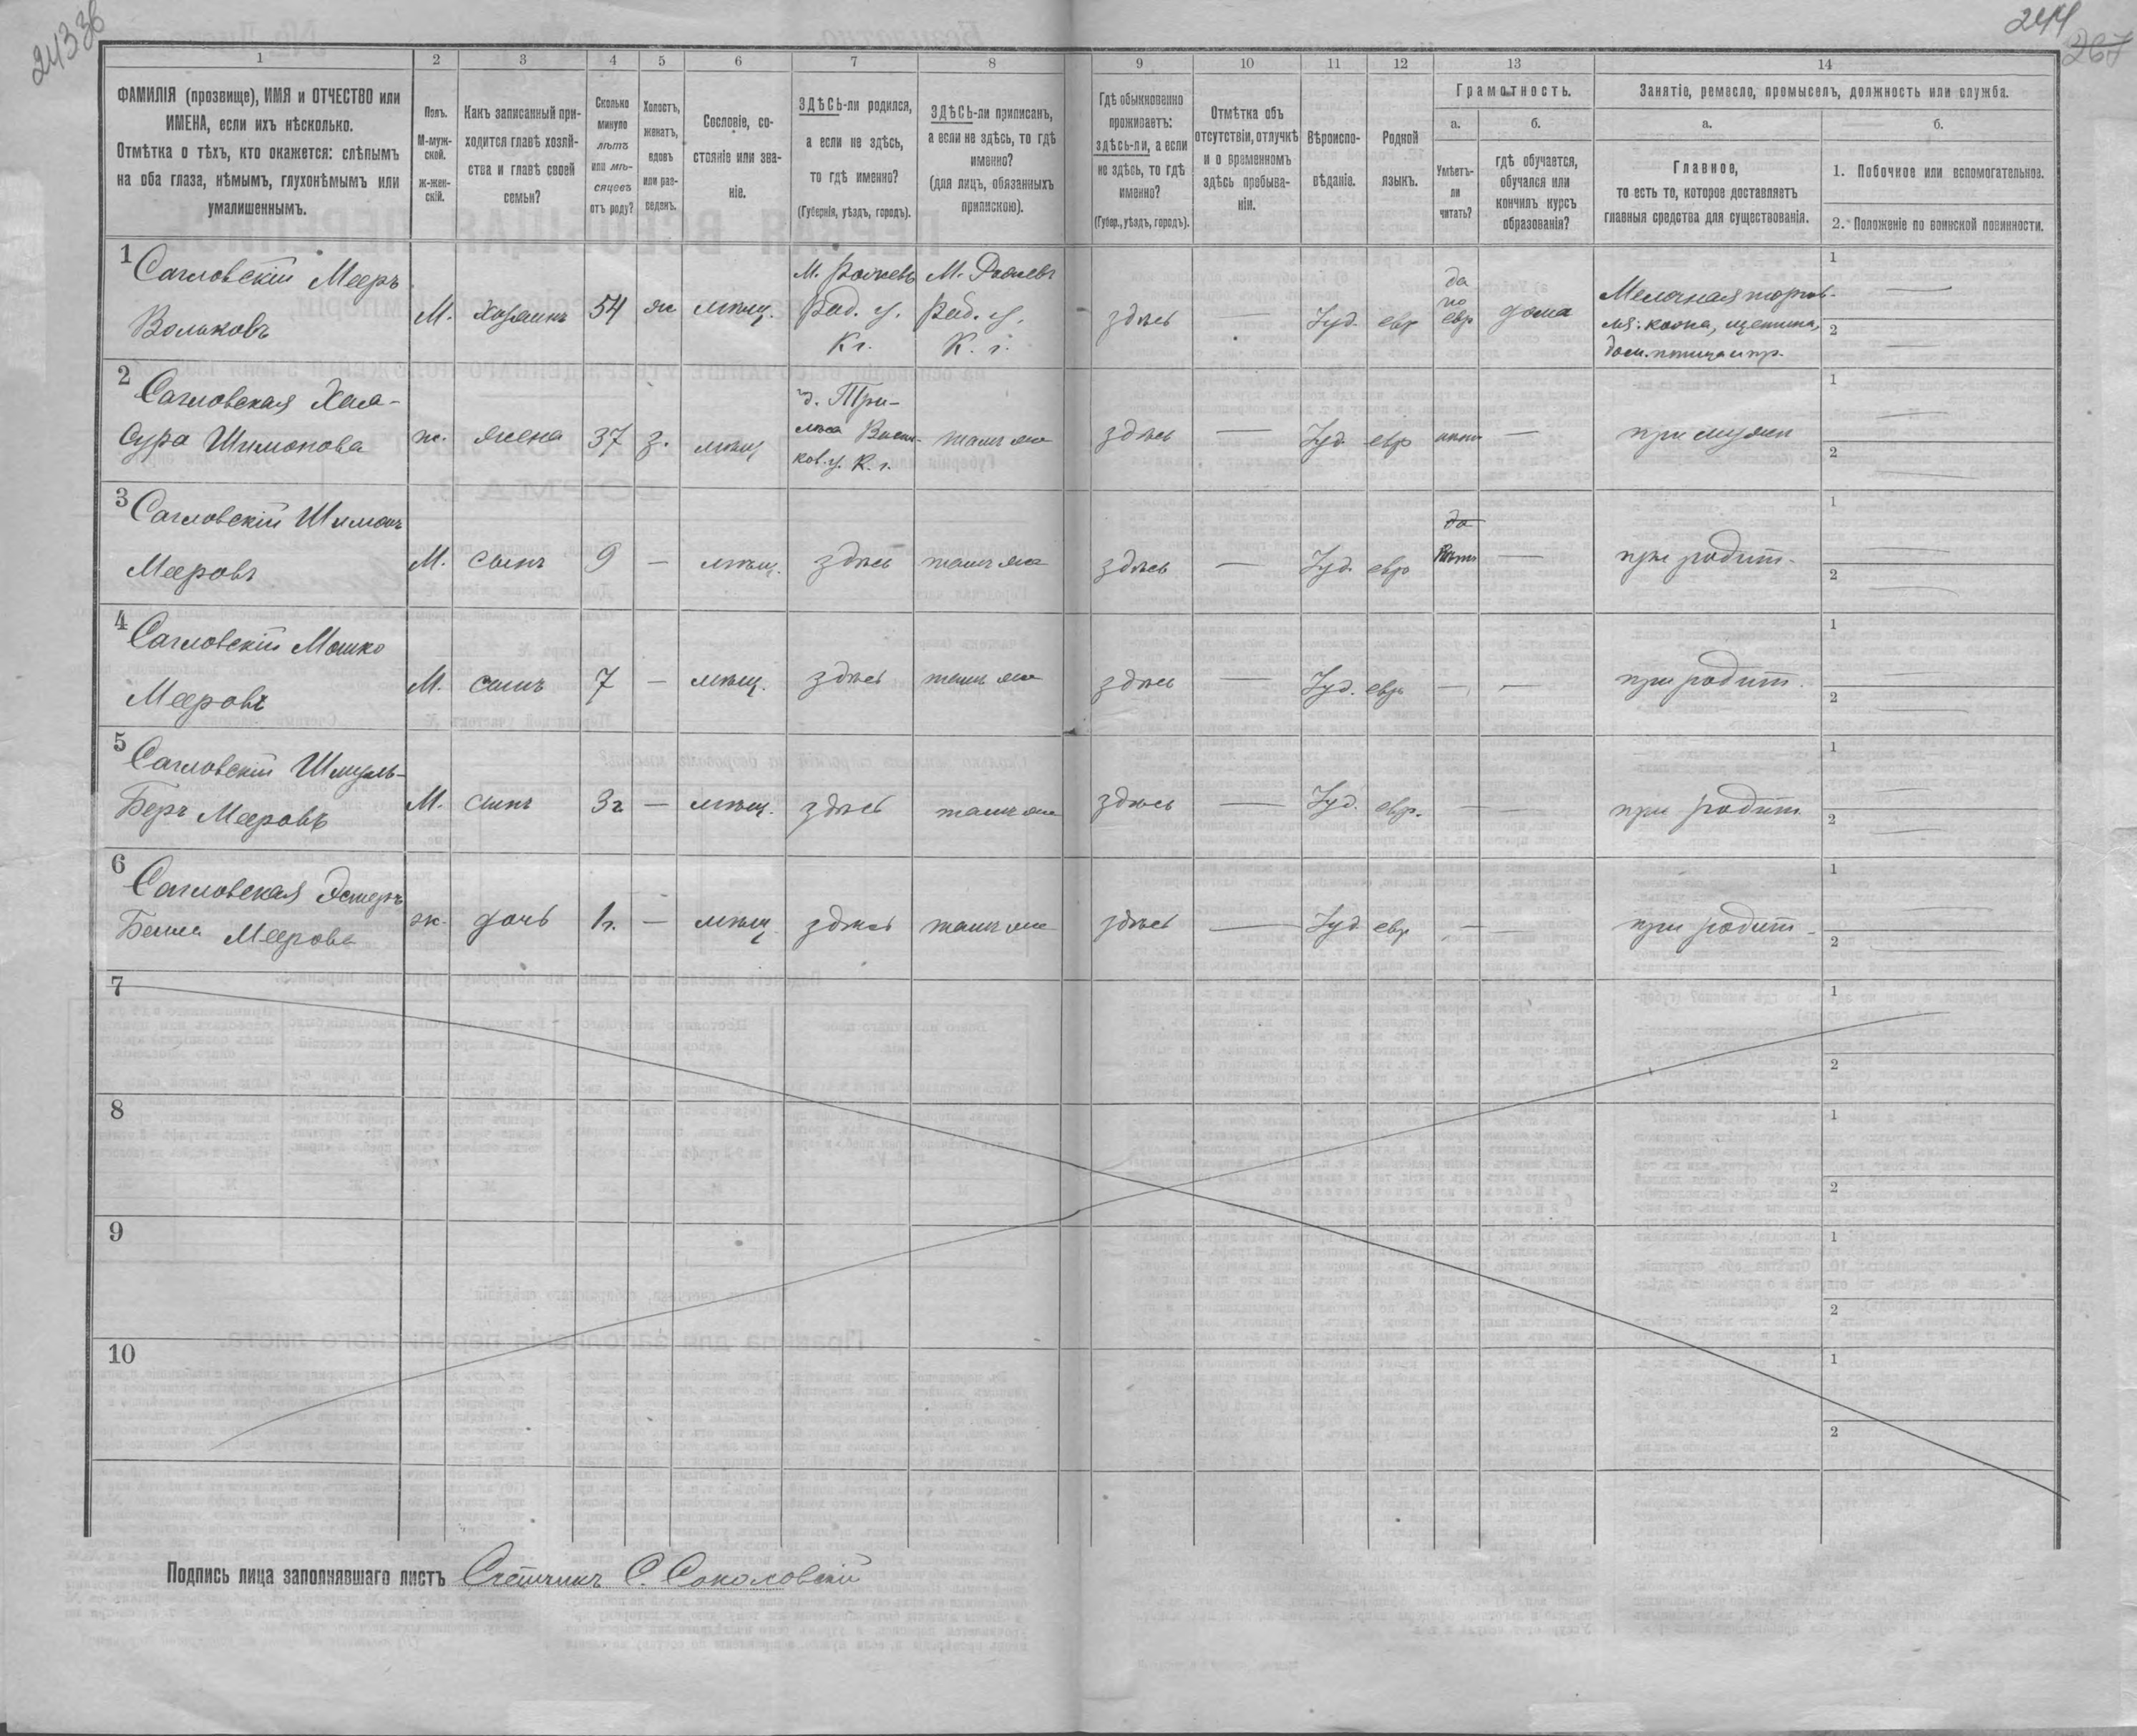 243 об
244
267
1 2 3 4 5 6 7 8 9 10 11 12 13 14
ФАМИЛІЯ (прозвище), ИМЯ и ОТЧЕСТВО или
ИМЕНА, если ихъ нѣсколько.
Отмѣтка о тѣхъ, кто окажется: слѣпымъ
на оба глаза, нѣмымъ, глухонѣмымъ или
умалишеннымъ.
Полъ.
М-муж-
ской.
Ж-жен-
скій.
Какъ записанный при-
ходится главѣ хозяй-
ства и главѣ своей
семьи?
Сколько
минуло
лѣтъ
или мѣ-
сяцевъ
отъ роду?
Холостъ,
женатъ,
вдовъ
или раз-
веденъ.
Сословіе, со-
стояніе или зва-
ніе.
ЗДѢСЬ-ли родился,
а если не здѣсь,
то гдѣ именно?
(Губернія, уѣздъ, городъ).
ЗДѢСЬ-ли приписанъ,
а если не здѣсь, то гдѣ
именно?
(для лицъ, обязанныхъ
припискою).
Гдѣ обыкновенно
проживаетъ:
здѣсь-ли, а если
не здѣсь, то гдѣ
именно?
(Губер., уѣздъ, городъ).
Отмѣтка объ
отсутствіи, отлучкѣ
и о временномъ
здѣсь пребыва-
ніи.
Вѣроиспо-
вѣданіе.
Родной
языкъ.
Грамотность.
а.
Умѣетъ-
ли
читать?
б.
гдѣ обучается,
обучался или
кончилъ курсъ
образованія?
Занятіе, ремесло, промыселъ, должность или служба.
а.
Главное,
то есть то, которое доставляетъ
главныя средства для существованія.
б.
1. Побочное или вспомогательное.
2. Положеніе по воинской повинности.
1 Сагловскій Мееръ
Вольковъ
М. Хозяинъ 54 ж мѣщ.
Рад. у.
К г.
Рад. у.
К. г.
здѣсь — Іуд. евр
да
по
евр
дома
Мелочная торгов-
дом. птица и пр.
1 —
2 —
2 Сагловская Хая-
Сура Шимонова
ж. жена 37 з. мѣщ
д. Три-
ков. у. К. г.
тамъ же здѣсь — Іуд. евр нѣтъ — при мужѣ
1 —
2 —
3 Сагловскій Шимонъ
Мееровъ
М. сынъ 9 — мѣщ. здѣсь тамъ же здѣсь — Іуд. евр
да
нѣтъ — при родит.
1 —
2 —
4 Сагловскій Мошко
Мееровъ
М. сынъ 7 — мѣщ. здѣсь тамъ же здѣсь — Іуд. евр — — при родит.
1 —
2 —
5 Сагловскій Шмуль-
Беръ Мееровъ
М. сынъ 3 г — мѣщ. здѣсь тамъ же здѣсь — Іуд. евр. — — при родит.
1 —
2 —
6 Сагловская Эстеръ
Бейла Меерова
ж. дочь 1 г. — мѣщ здѣсь тамъ же здѣсь — Іуд. евр — — при родит.
1 —
2 —
7
1
2
8
1
2
9
1
2
10
1
2
Подпись лица заполнявшаго листъ Счетчикъ С. Соколовскій